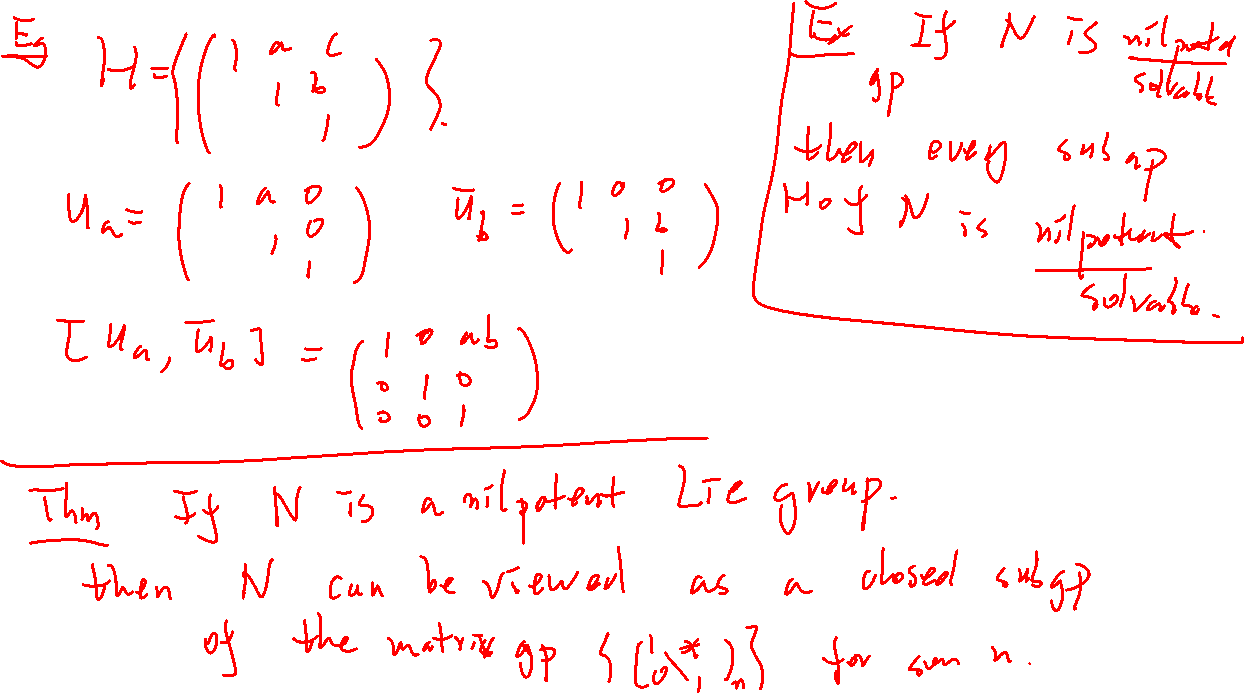 Eg H = {( 1 a c
1 b
1 )}.
u_a = ( 1 a 0
1 0
1 ) ū_b = ( 1 0 0
1 b
1 )
[u_a, ū_b] = ( 1 0 ab
0 1 0
0 0 1 )
Ex If N is nilpotent
gp solvable
then every subgp
H of N is nilpotent.
solvable.
Thm If N is a nilpotent Lie group.
then N can be viewed as a closed subgp
of the matrix gp {( 1 *
0 \ 1 )_n} for som n.